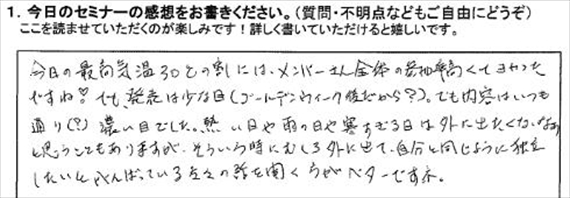 1. 今日のセミナーの感想をお書きください。(質問・不明点などもご自由にどうぞ)
ここを読ませていただくのが楽しみです!詳しく書いていただけると嬉しいです。
今日の最高気温30度の割には、メンバーさん全体の参加率高くてよかった
ですね♡でも、発表は少な目(ゴールデンウィーク後だから?)。でも内容はいつも
通り(?)濃い目でした。熱い日や雨の日や寒すぎる日は外に出たくないなぁ
と思うこともありますが、そういう時にむしろ外に出て、自分と同じように独立
したいとがんばっている方々の話を聞くうがベターですネ。